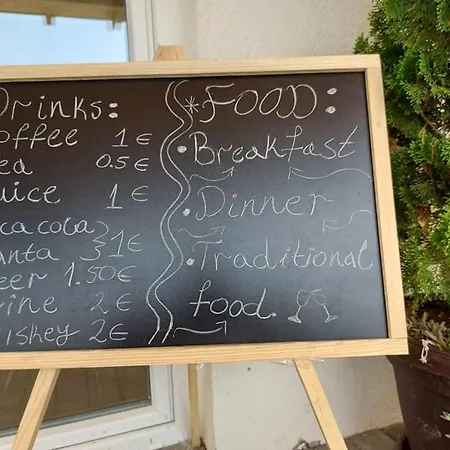 Drinks:
Coffee 1€
Tea 0.5€
Juice 1€
Coca cola }
Fanta } 1€
Beer 1.50€
Wine 2€
Whiskey 2€
*FOOD:
• Breakfast
• Dinner
• Traditional
food.